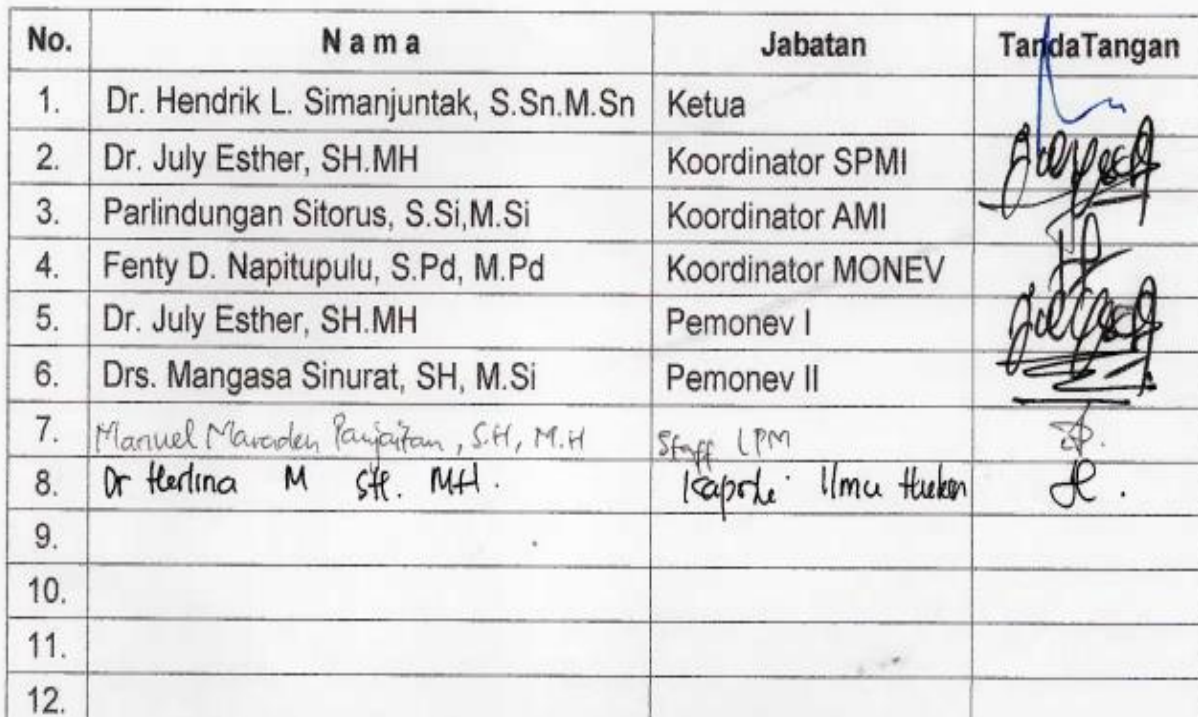 No. Nama Jabatan TandaTangan
1. Dr. Hendrik L. Simanjuntak, S.Sn.M.Sn Ketua
2. Dr. July Esther, SH.MH Koordinator SPMI
3. Parlindungan Sitorus, S.Si,M.Si Koordinator AMI
4. Fenty D. Napitupulu, S.Pd, M.Pd Koordinator MONEV
5. Dr. July Esther, SH.MH Pemonev I
6. Drs. Mangasa Sinurat, SH, M.Si Pemonev II
7. Manuel Panjaitan, S.H, M.H Staff LPM
8. Dr Herlina M SH. MH. Ilmu
9.
10.
11.
12.